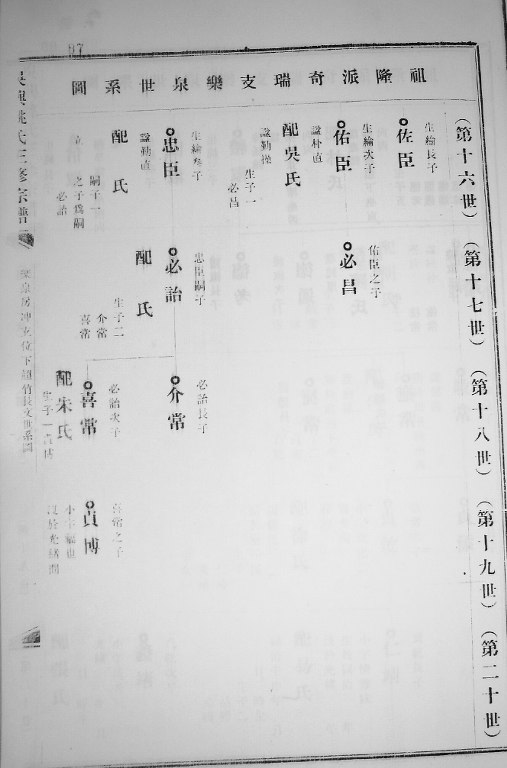 祖隆派奇瑞支樂泉世系圖
（第十六世）
（第十七世）
（第十八世）
（第十九世）
（第二十世）
生綸長子
佐臣
生綸次子
佑臣
謚朴直
配吳氏
謚勤操
生子一
必昌
佑臣之子
必昌
生綸參子
忠臣
謚勤直
配氏
嗣子一
之子爲嗣
必詒
立
忠臣嗣子
必詒
配氏
生子二
介常
喜常
必詒長子
介常
必詒次子
喜常
配朱氏
生子一貞博
喜常之子
貞博
小字福
氏三修宗譜
97